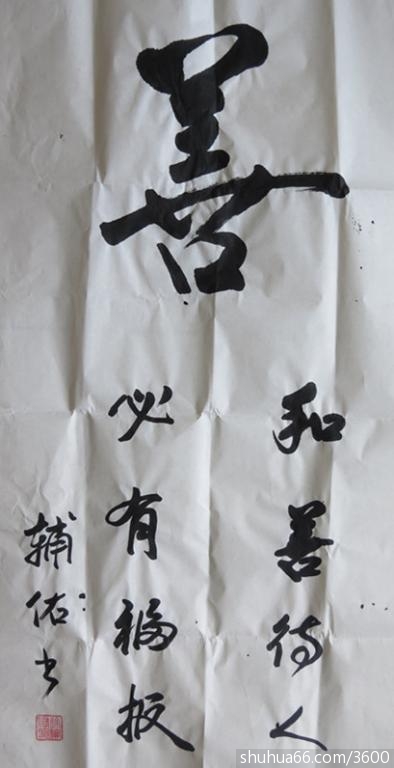 善
和善待人
必有福报
輔佑书
shuhua66.com/3600